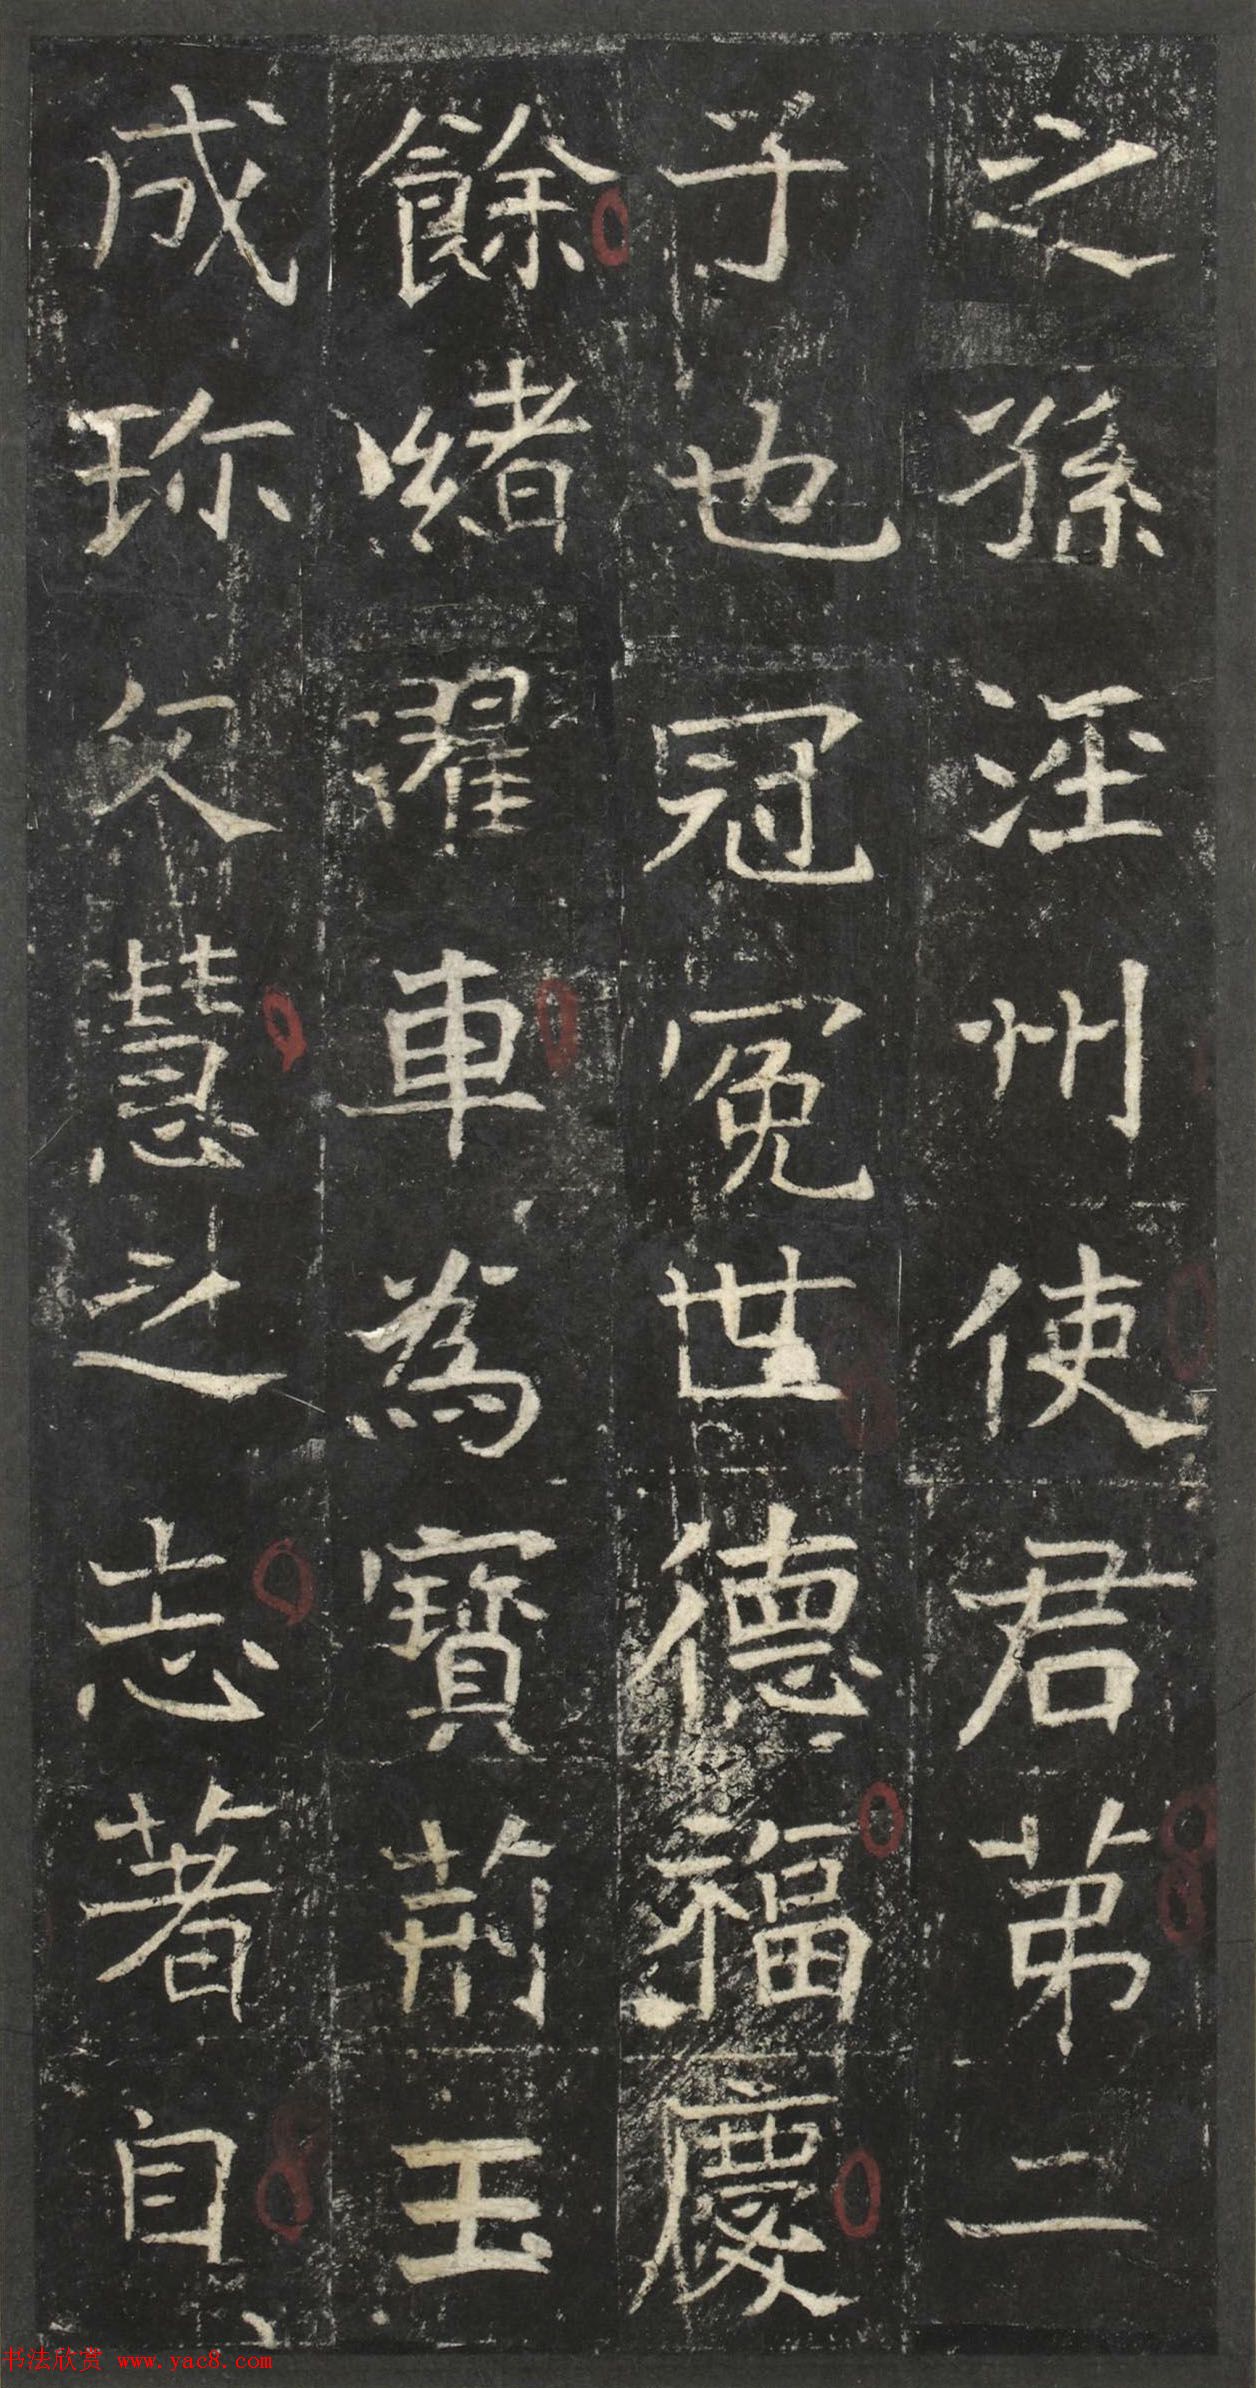 之孫涇州使君苐二
子也冠冕世德福慶
餘緒濯車為寶荊玉
成珎久慧之志著自
书法欣赏 www.yac8.com